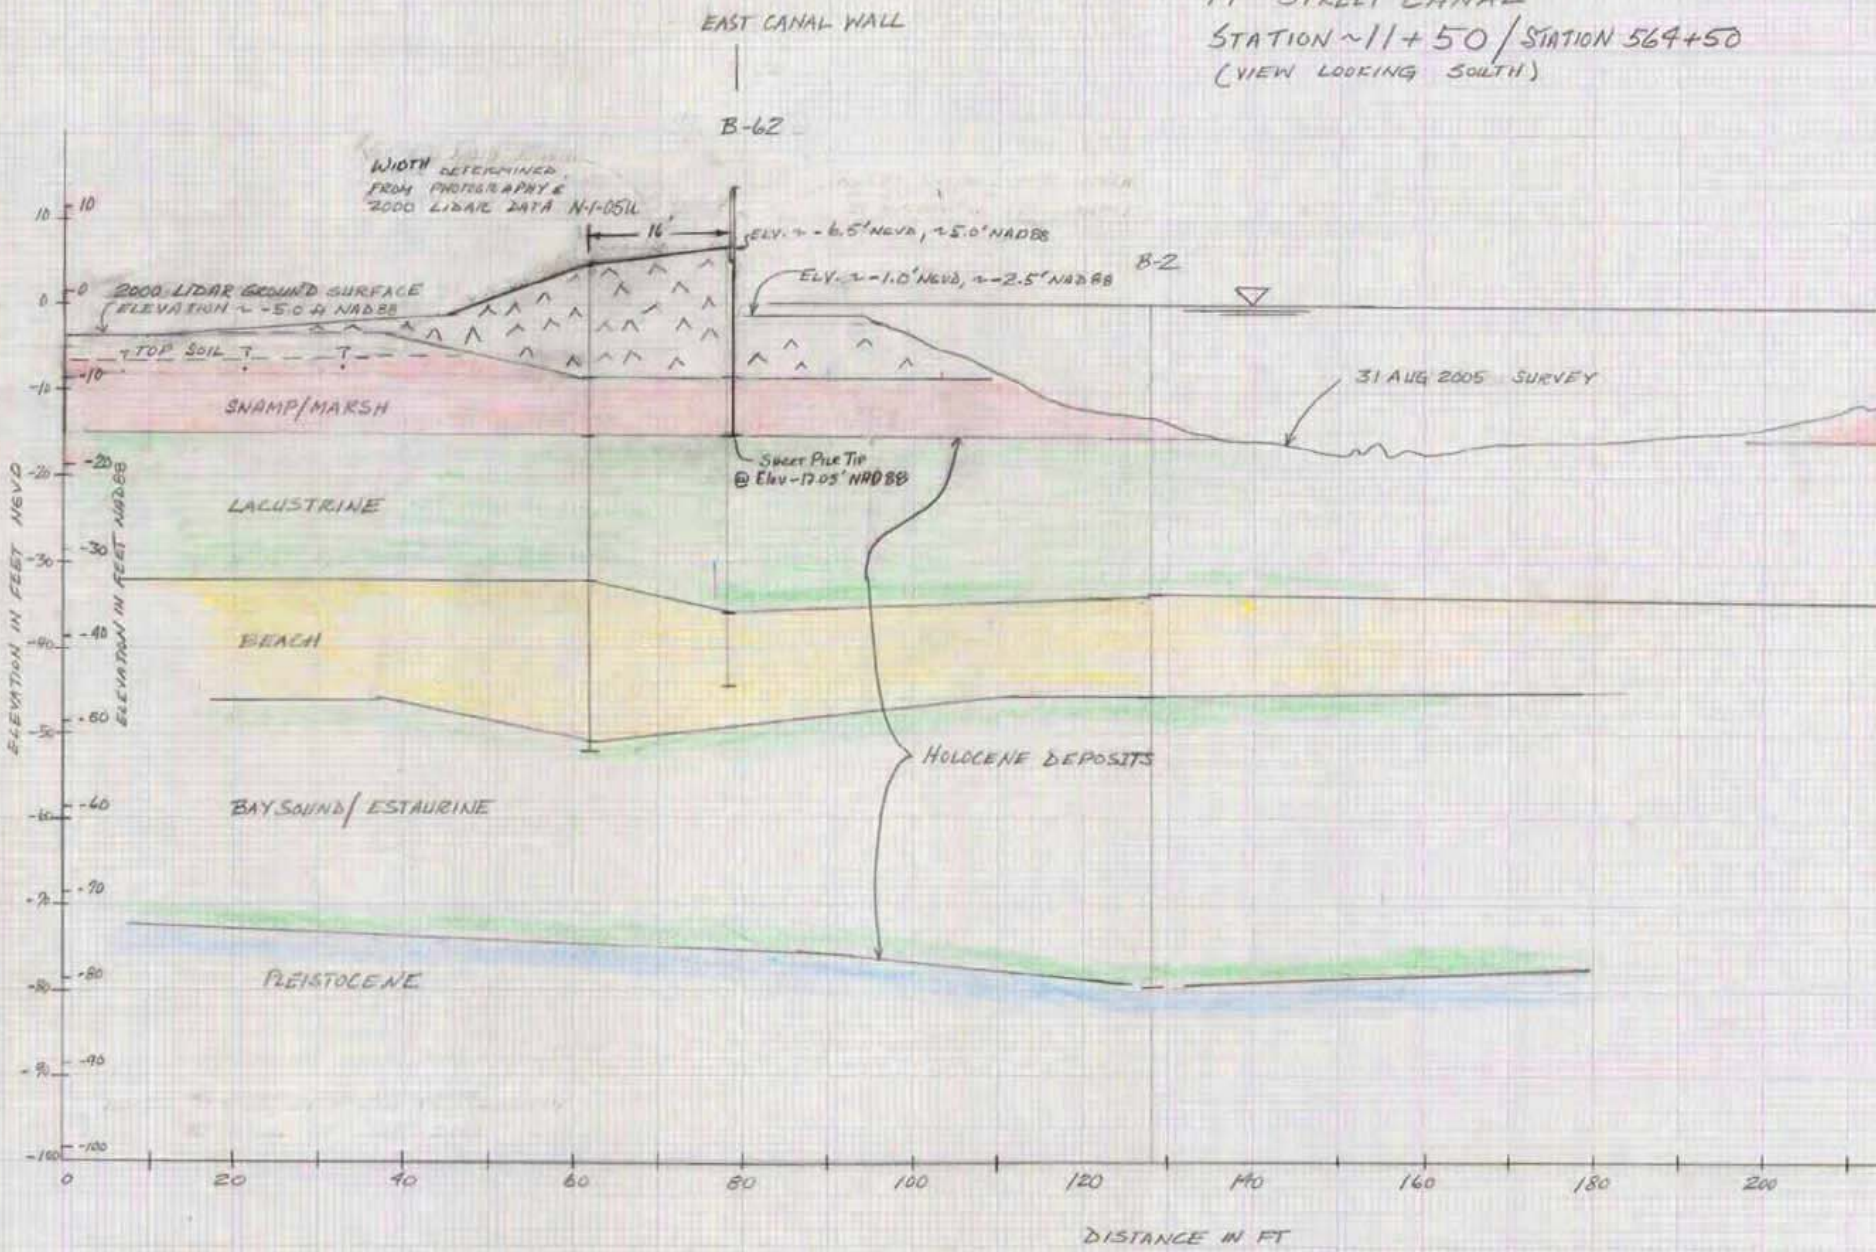 EAST CANAL WALL
STREET CANAL
STATION ~11+50/STATION 564+50
(VIEW LOOKING SOUTH)
B-62
WIDTH DETERMINED
FROM PHOTOGRAPHY &
2000 LIDAR DATA
16'
ELV. ~ -6.5' NGVD, ~5.0' NAD88
ELV. ~ -1.0' NGVD, ~-2.5' NAD88
B-2
2000 LIDAR GROUND SURFACE
ELEVATION ~ -5.0 ft NAD88
? TOP SOIL ? ?
31 AUG 2005 SURVEY
SWAMP/MARSH
SHEET PILE TIP
@ Elev -17.05' NAD88
LACUSTRINE
BEACH
HOLOCENE DEPOSITS
BAY SOUND/ESTAURINE
PLEISTOCENE
ELEVATION IN FEET NGVD
10
0
-10
-20
-30
-40
-50
-60
-70
-80
-90
-100
ELEVATION IN FEET NAD88
10
0
-10
-20
-30
-40
-50
-60
-70
-80
-90
-100
0 20 40 60 80 100 120 140 160 180 200
DISTANCE IN FT